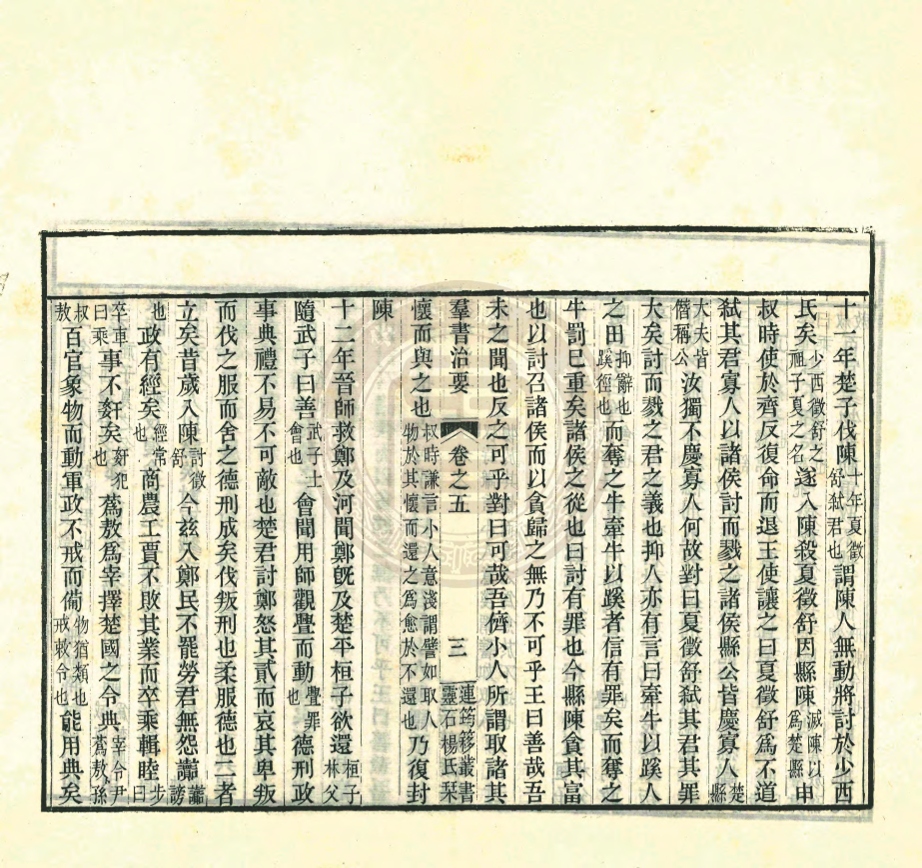 十一年楚子伐陳十年夏徵舒弑君也謂陳人無動將討於少西
氏矣少西徵舒之祖子夏之名遂入陳殺夏徵舒因縣陳滅陳以爲楚縣申
叔時使於齊反復命而退王使讓之曰夏徵舒爲不道
弑其君寡人以諸侯討而戮之諸侯縣公皆慶寡人楚縣
大夫皆僭稱公汝獨不慶寡人何故對曰夏徵舒弑其君其罪
大矣討而戮之君之義也抑人亦有言曰牽牛以蹊人
之田抑辭也蹊徑也而奪之牛牽牛以蹊者信有罪矣而奪之
牛罰已重矣諸侯之從也曰討有罪也今縣陳貪其富
也以討召諸侯而以貪歸之無乃不可乎王曰善哉吾
未之聞也反之可乎對曰可哉吾儕小人所謂取諸其
羣書治要 卷之五 三 連筠簃叢書 靈石楊氏栞
懷而與之也叔時謙言小人意淺謂譬如取人物於其懷而還之爲愈於不還也乃復封
陳
十二年晉師救鄭及河聞鄭旣及楚平桓子欲還桓子林父
隨武子曰善武子士會也會聞用師觀釁而動釁罪也德刑政
事典禮不易不可敵也楚君討鄭怒其貳而哀其卑叛
而伐之服而舍之德刑成矣伐叛刑也柔服德也二者
立矣昔歲入陳討徵舒今兹入鄭民不罷勞君無怨讟讟謗
也政有經矣經常也商農工賈不敗其業而卒乘輯睦步曰
卒車曰乘事不奸矣奸犯也蒍敖爲宰擇楚國之令典宰令尹蒍敖孫
叔敖百官象物而動軍政不戒而備物猶類也戒敕令也能用典矣